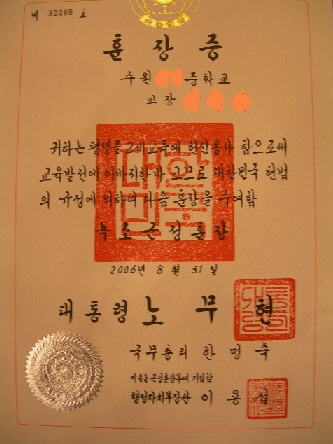 제 32268 호
훈장증
수원 중학교
교장
귀하는 평생을 2세교육에 헌신봉사 함으로써
교육발전에 이바지한바 크므로 대한민국 헌법
의 규정에 의하여 다음 훈장을 수여함
녹조근정훈장
2006년 8월 31일
대통령 노무현
국무총리 한명숙
이 증을 근정훈장부에 기입함
행정자치부장관 이용섭